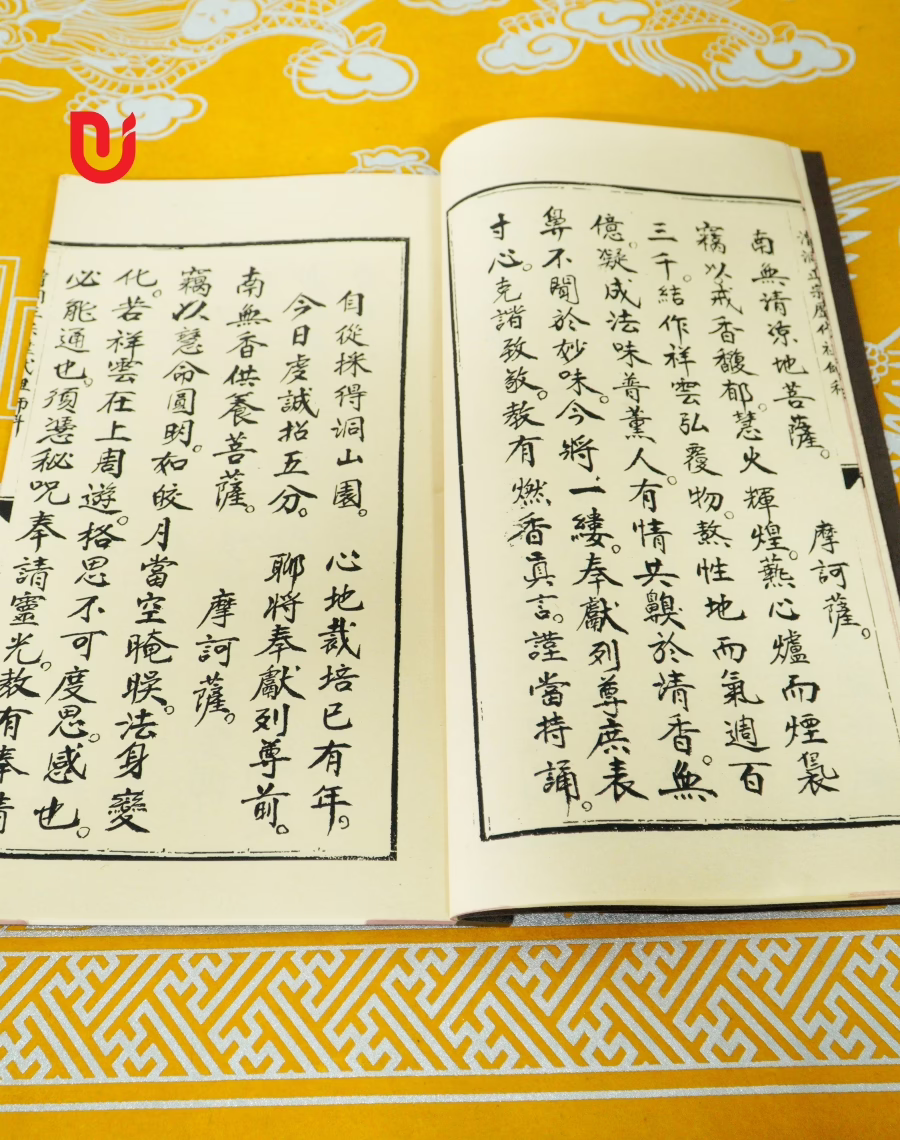 南無清凉地菩薩。 摩訶薩。
竊以戒香馥郁。慧火輝煌。爇心爐而煙裊
三千。結作祥雲弘覆物。熬性地而氣週百
億。凝成法味普薰人。有情共齅於清香。無
鼻不聞於妙味。今將一縷。奉獻列尊。庶表
寸心。克諧致敬。教有燃香真言。謹當持誦。
自從採得洞山園。 心地栽培已有年。
今日虔誠招五分。 聊將奉獻列尊前。
南無香供養菩薩。 摩訶薩。
竊以慧命圓明。如皎月當空晻暎。法身變
化。若祥雲在上周遊。格思不可度思。感也
必能通也。須憑秘咒奉請靈光。教有奉請